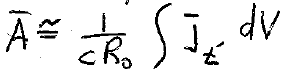 Ā ≅ 1/(cR₀) ∫ j̄_t' dV